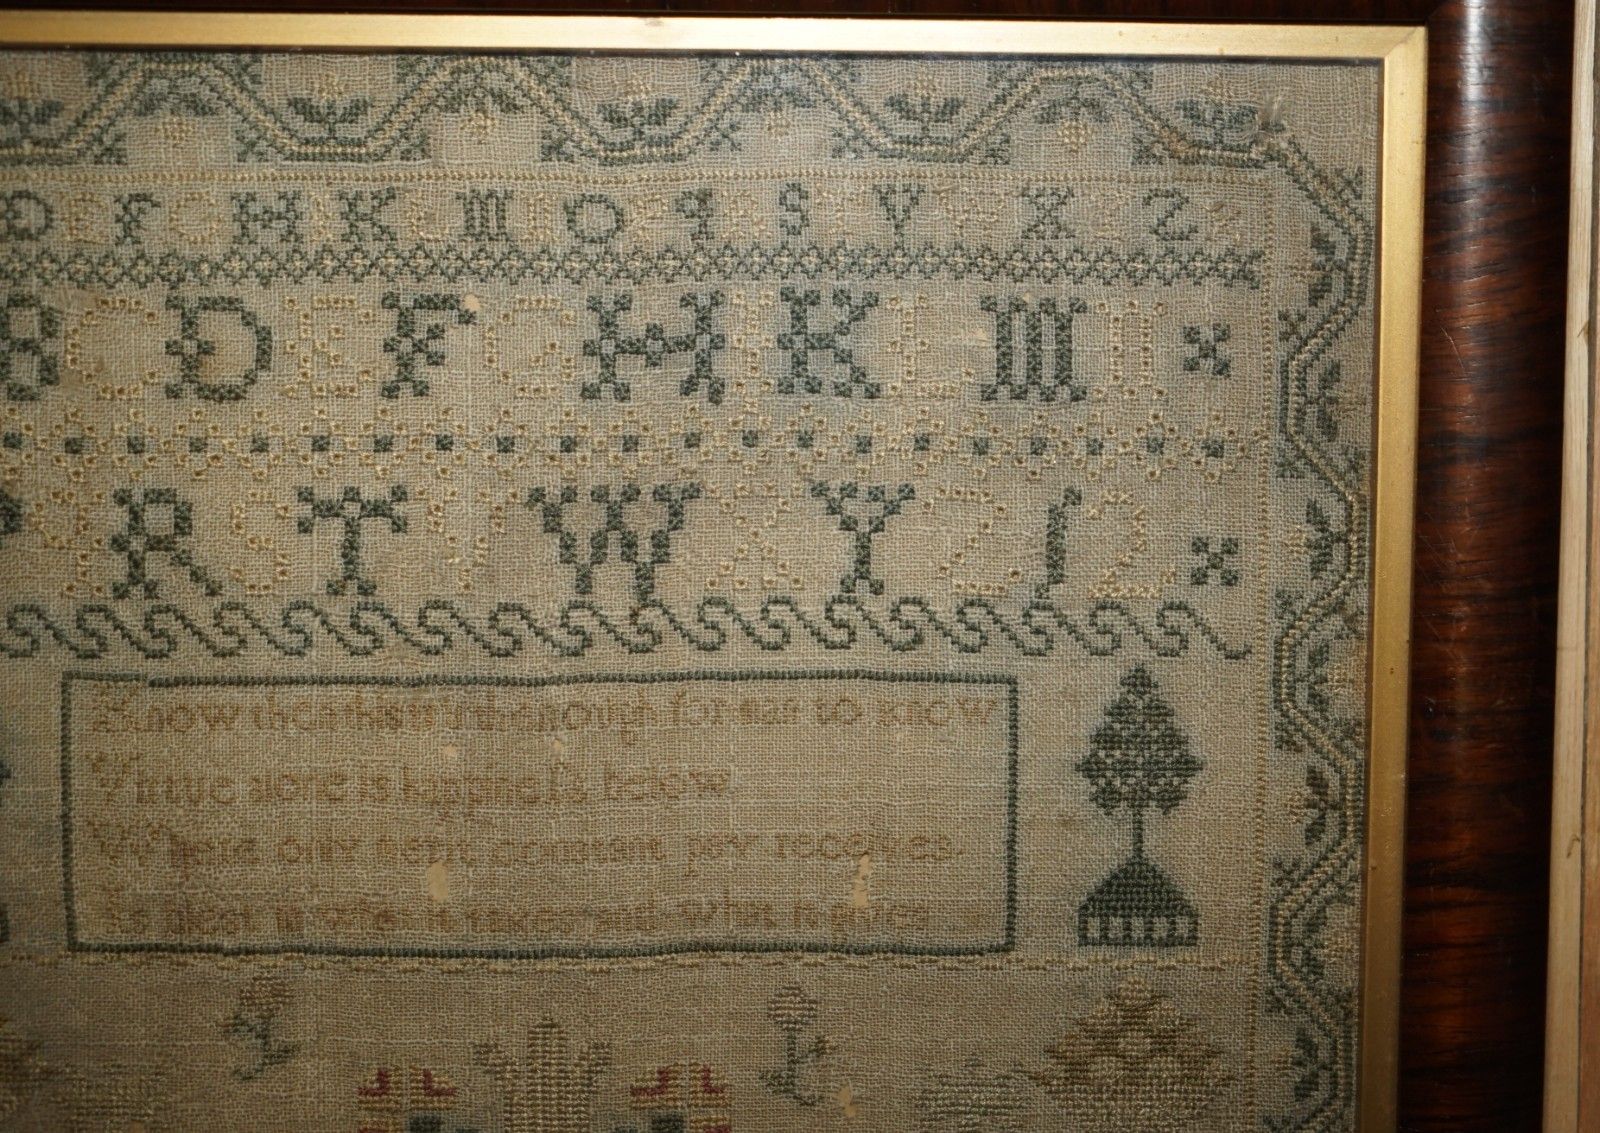 D E F G H I K L M N O q R S Y X Z
B C D E F G H I K L M N
Q R S T V W X Y Z 1 2
Know then this truth enough for man to know
Virtue alone is happineſs below
Where only merit constant pay receives.
Is blest in what it takes and what it gives